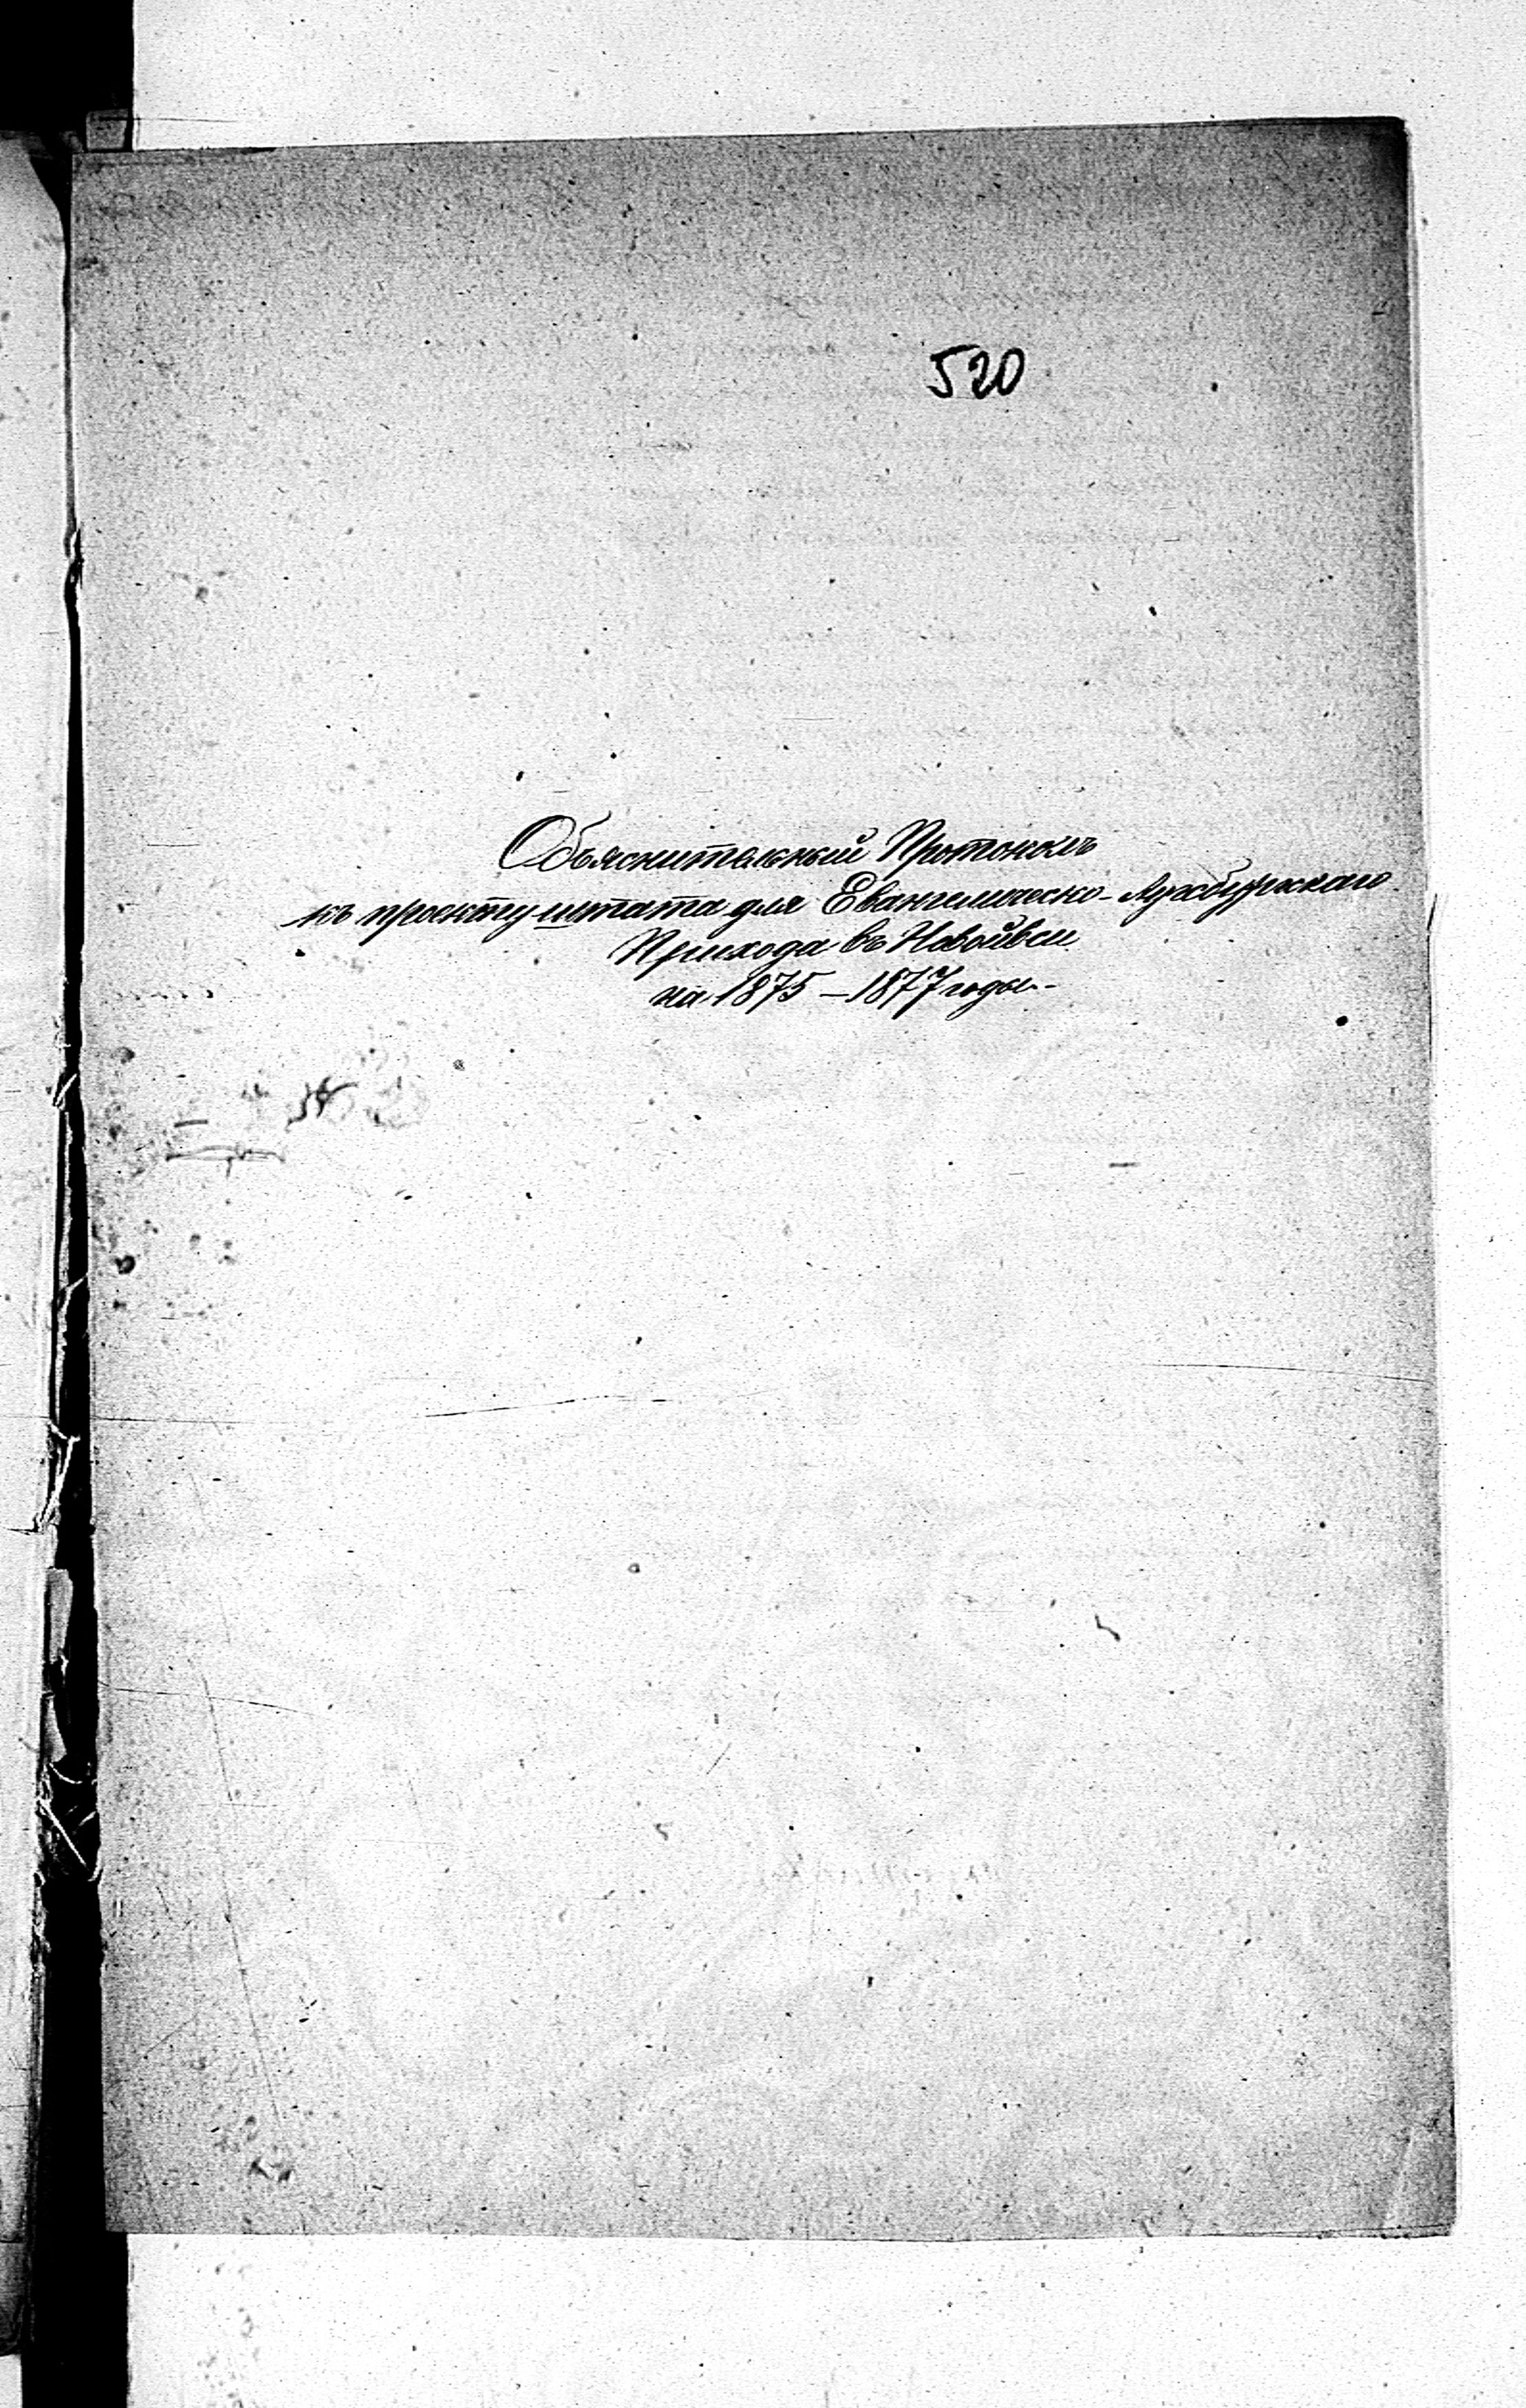 520
Объяснительный Протоколъ
къ проекту штата для Евангелическо-Аугсбургскаго
Прихода въ Новойвси
на 1875 – 1877 годы.-